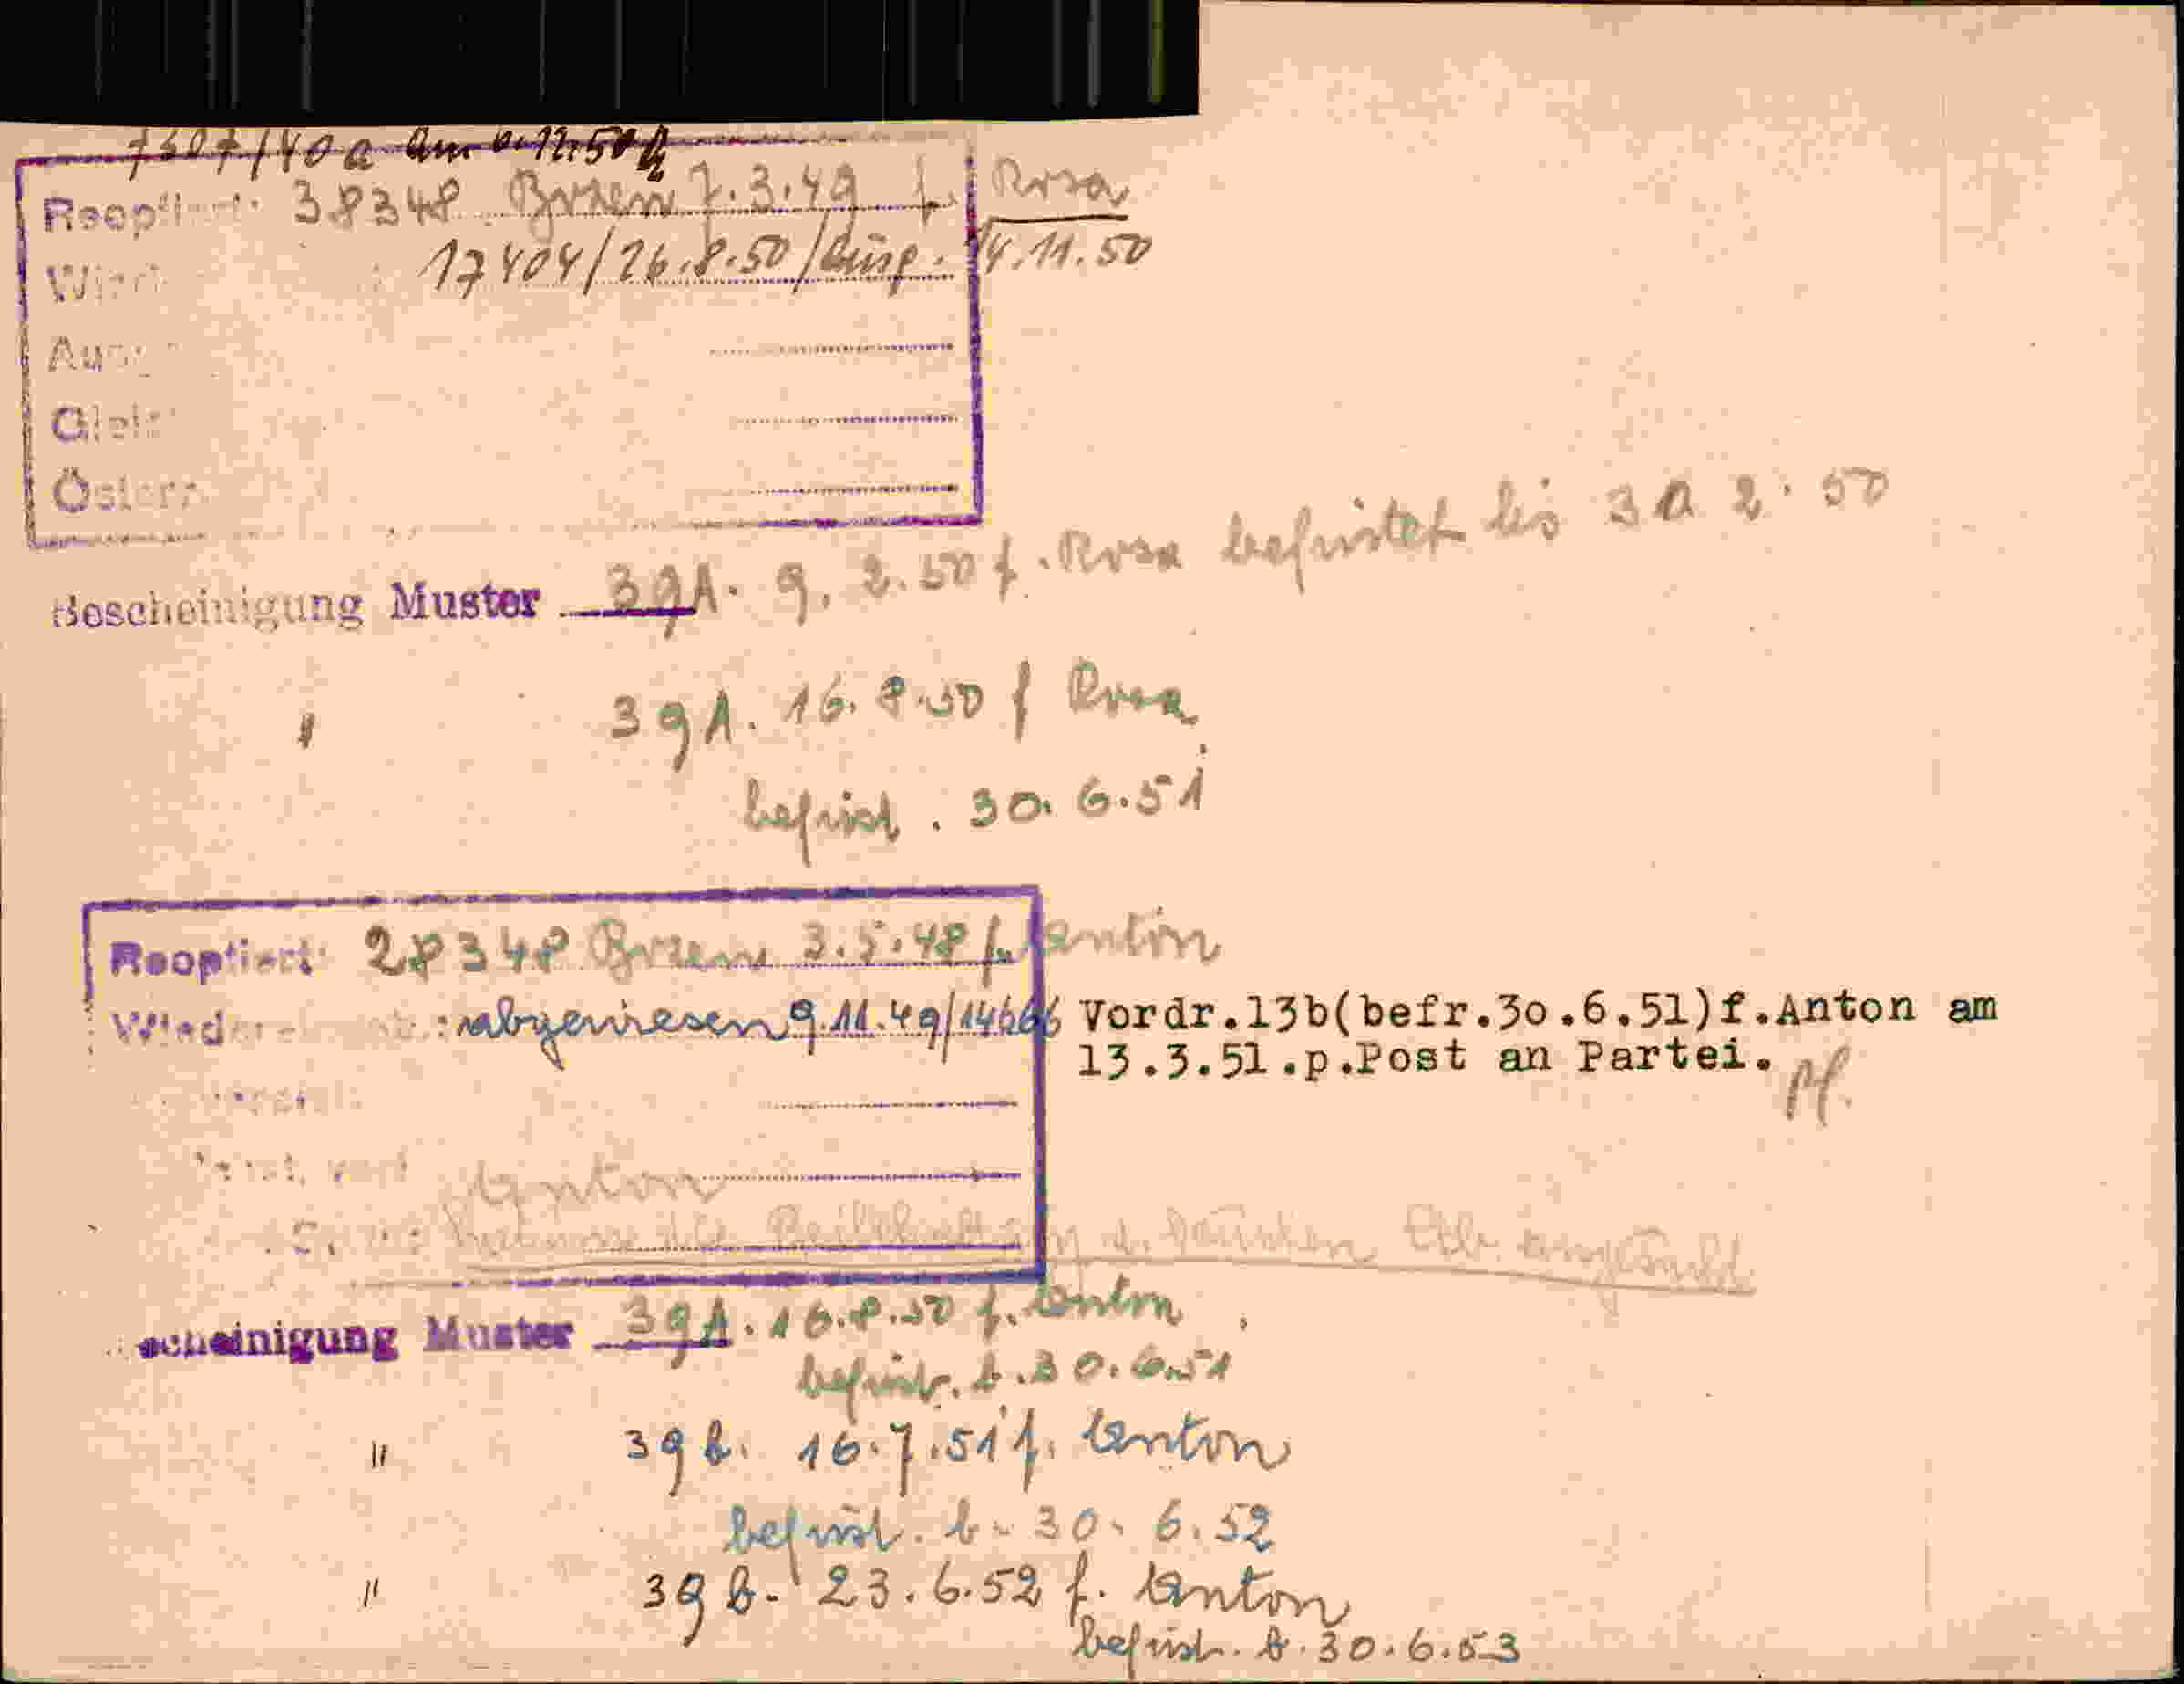 7307/40 a am 12.50
Reoptiert: 38348 Bozen 7.3.49 f. Rosa
17404/26.8.50/Eing. 14.11.50
Bescheinigung Muster 39A. 9. 2.50 f. Rosa befristet bis 30 2. 50
" 39A. 16. 8.50 f Rosa
befrist. 30. 6.51
Reoptiert: 28348 Bozen 3.5.48 f. Anton
: abgewiesen 9.11.49/14666 Vordr.13b(befr.30.6.51)f.Anton am
13.3.51.p.Post an Partei.
Anton
scheinigung Muster 39A. 16.8.50 f. Anton
befrist. b. 30. 6.51
" 39b. 16.7.51 f. Anton
befrist. b. 30. 6.52
" 39b. 23.6.52 f. Anton
befrist. b. 30.6.53